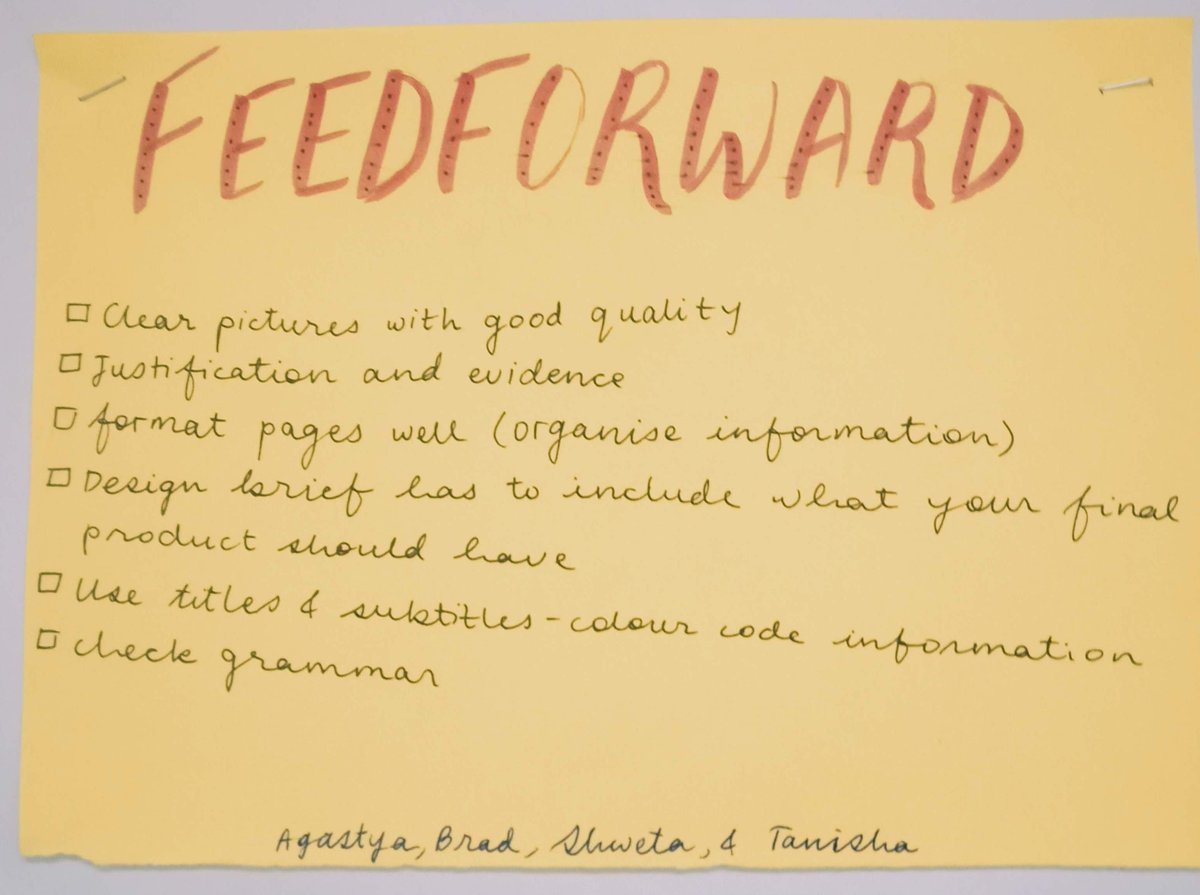 FEEDFORWARD
□ Clear pictures with good quality
□ Justification and evidence
□ format pages well (organise information)
□ Design brief has to include what your final
product should have
□ Use titles & subtitles - colour code information
□ check grammar
Agastya, Brad, Shweta, & Tanisha